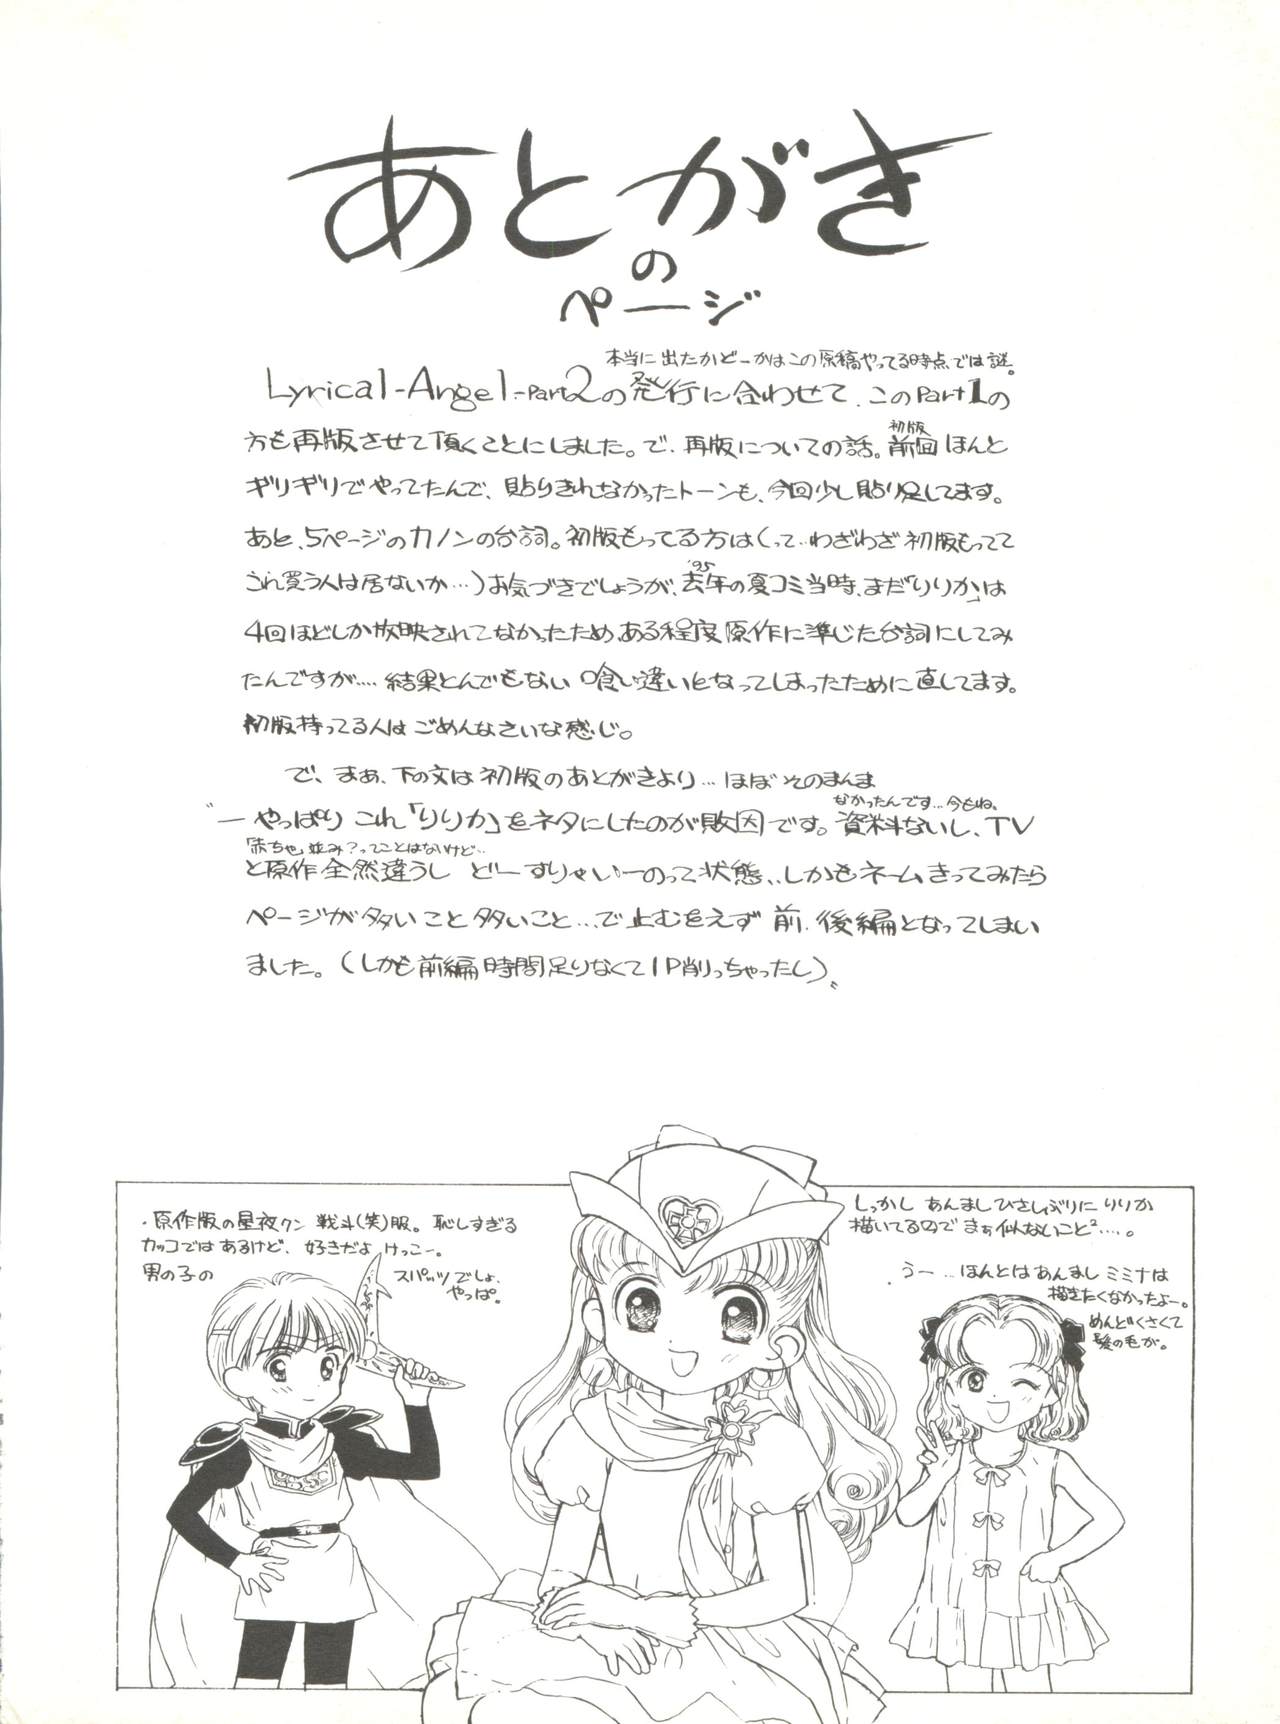 あとがき
の
ページ
本当に出たかどーかはこの原稿やってる時点では謎。
Lyrical-Angel-Part2の発行に合わせて、このPart1の
方も再版させて頂くことにしました。で、再版についての話。前回ほんと
初版
ギリギリでやってたんで、貼りきれなかったトーンも、今回少し貼り足してます。
あと、5ページのカノンの台詞。初版もってる方は(って…わざわざ初版もってて
これ買う人は居ないか…)お気づきでしょうが、去年の夏コミ当時、まだ「りりか」は
'95
4回ほどしか放映されてなかったため、ある程度原作に準じた台詞にしてみ
たんですが…. 結果とんでもない喰い違いとなってしまったために直してます。
初版持ってる人はごめんなさいな感じ。
で、まぁ、下の文は初版のあとがきより…ほぼそのまんま
なかったんです…今もね、
〝―やっぱりこれ「りりか」をネタにしたのが敗因です。資料ないし、TV
「赤ちゃ」並み?ってことはないけど…
と原作全然違うし どーすりゃいーのって状態、、しかもネームきってみたら
ページが多いこと多いこと…で止むをえず前、後編となってしまい
ました。(しかも前編時間足りなくて1P削っちゃったし)〟
・原作版の星夜クン 戦斗(笑)服。恥しすぎる
カッコではあるけど、好きだよ けっこー。
男の子の
スパッツでしょ、
やっぱ。
しっかし あんましひさしぶりに りりか
描いてるので まぁ似ないこと²….。
うー…ほんとはあんましミミナは
描きたくなかったよー。
めんどくさくて
髪の毛が。